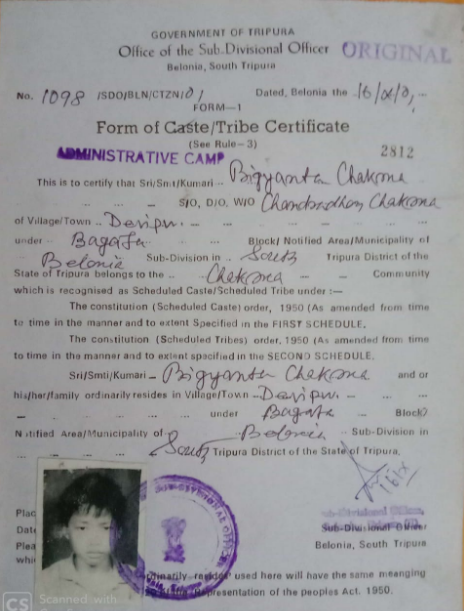 GOVERNMENT OF TRIPURA
Office of the Sub-Divisional Officer ORIGINAL
Belonia, South Tripura
No. 1098 /SDO/BLN/CTZN/ Dated, Belonia the 16/
FORM—1
Form of Caste/Tribe Certificate
(See Rule-3)
ADMINISTRATIVE CAMP 2812
This is to certify that Sri/Smt/Kumari Bigyanta Chakma
S/O, D/O, W/O Chakma
of Village/Town Devipur
under Bagafa Block/ Notified Area/Municipality of
Belonia Sub-Division in South Tripura District of the
State of Tripura belongs to the Chakma Community
which is recognised as Scheduled Caste/Scheduled Tribe under :—
The constitution (Scheduled Caste) order, 1950 (As amended from
time to time in the manner and to extent Specified in the FIRST SCHEDULE.
The constitution (Scheduled Tribes) order, 1950 (As amended from
time to time in the manner and to extent specified in the SECOND SCHEDULE.
Sri/Smti/Kumari Bigyanta Chakma and or
his/her/family ordinarily resides in Village/Town Devipur
under Bagafa Block/
Notified Area/Municipality of Belonia Sub-Division in
South Tripura District of the State of Tripura.
Plac
Date Sub-Divisional Officer
Plea Belonia, South Tripura
whi
ordinarily resides used here will have the same meanging
Representation of the peoples Act. 1950.
CS Scanned with